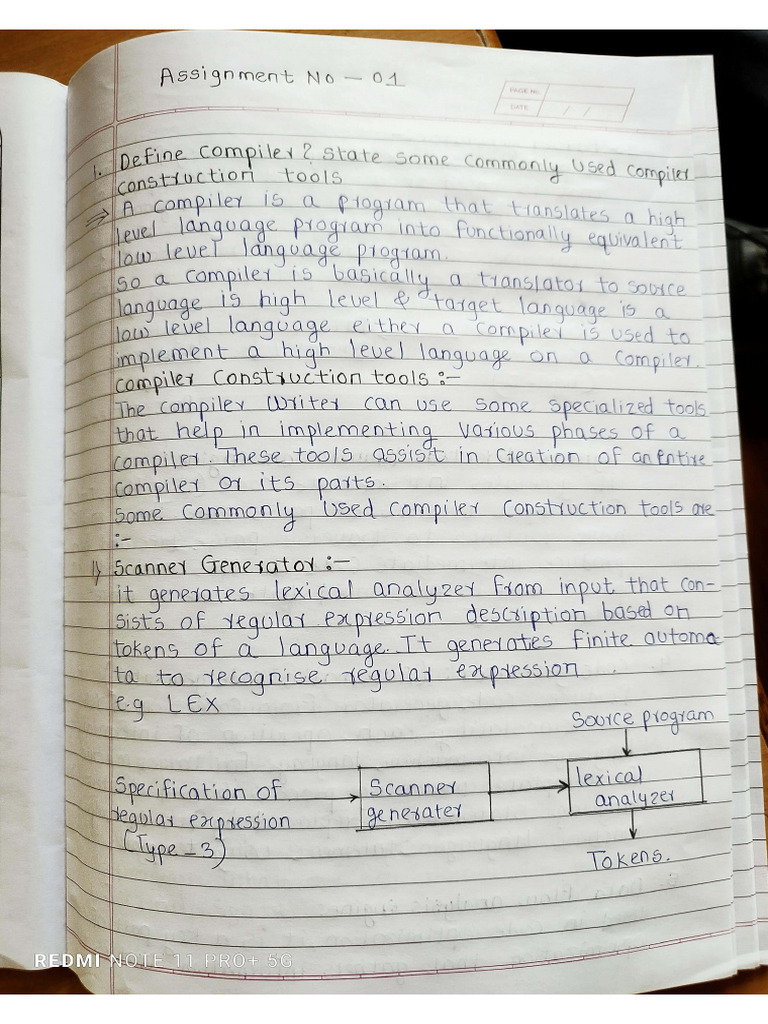 Assignment No - 01
PAGE No.
DATE / /
1. Define compiler? State some commonly used compiler
construction tools
⇒ A compiler is a program that translates a high
level language program into functionally equivalent
low level language program.
So a compiler is basically a translator to source
language is high level & target language is a
low level language either a compiler is used to
implement a high level language on a compiler.
Compiler Construction tools :-
The compiler writer can use some specialized tools
that help in implementing various phases of a
compiler. These tools assist in creation of an entire
compiler or its parts.
Some commonly used compiler construction tools are
:-
1) Scanner Generator :-
it generates lexical analyzer from input that con-
sists of regular expression description based on
tokens of a language. It generates finite automa-
ta to recognise regular expression.
e.g LEX
Source program
Specification of
regular expression
(Type - 3)
Scanner
generater
lexical
analyzer
Tokens.
REDMI NOTE 11 PRO+ 5G